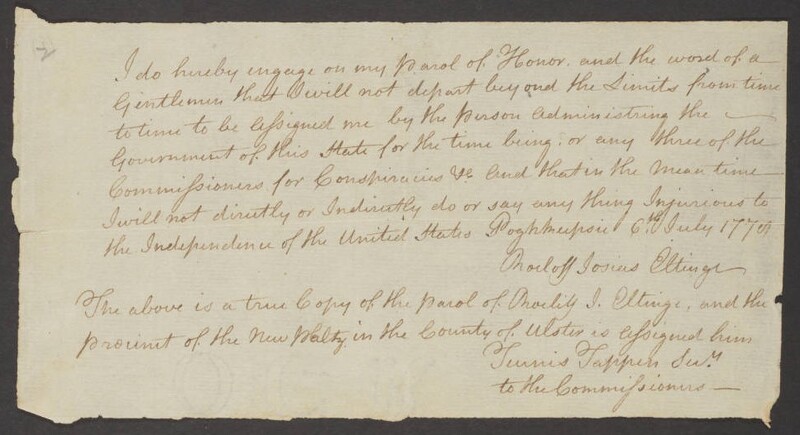 2
I do hereby engage on my parol of Honor. and the word of a
Gentlemen that I will not depart beyond the Limits from time
to time to be assigned me by the Person Administring the —
Government of this State for the time being: or any three of the
Commissioners for Conspiracies &c and that in the mean time
I will not directly or Indirectly do or say any thing Injurious to
the Independence of the United States Poghkeepsie 6th July 177
Roeloff Josias Eltinge
The above is a true Copy of the parol of J. Eltinge, and the
Precinct of the New Paltz in the County of Ulster is assigned him
Teunis Tappen Secy
to the Commissioners —